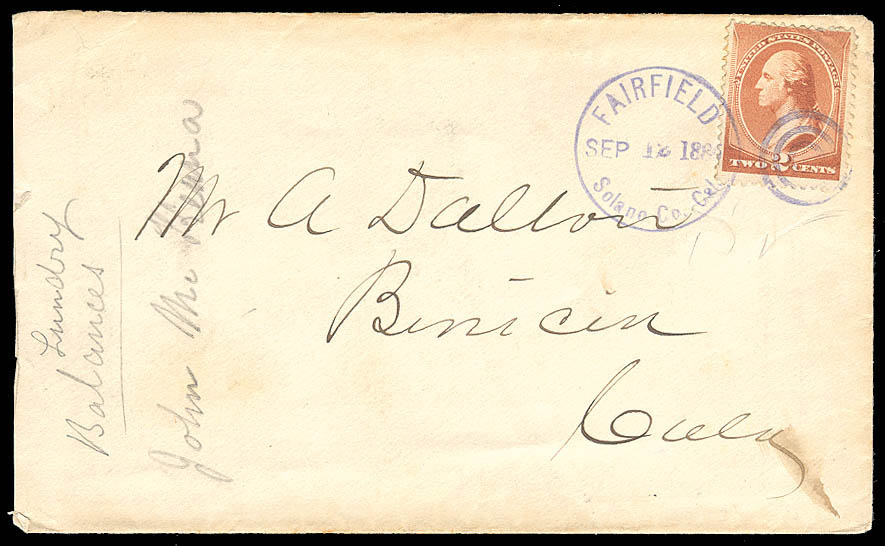 FAIRFIELD
SEP 12 188
Solano Co., Cal.
UNITED STATES POSTAGE
TWO 2 CENTS
Mr A Dalton
Benicia
Cala
Lundry
Balances
John Mc